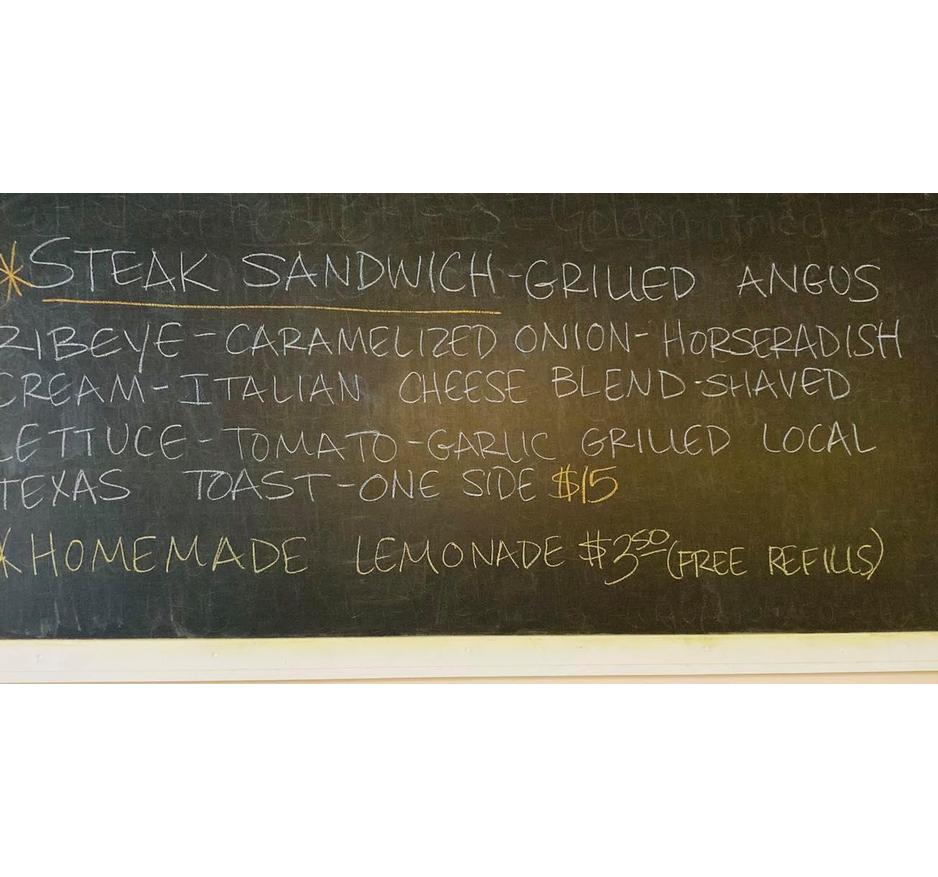 Golden fried
*STEAK SANDWICH-GRILLED ANGUS
RIBEYE-CARAMELIZED ONION-HORSERADISH
CREAM-ITALIAN CHEESE BLEND-SHAVED
LETTUCE-TOMATO-GARLIC GRILLED LOCAL
TEXAS TOAST-ONE SIDE $15
*HOMEMADE LEMONADE $3.50 (FREE REFILLS)